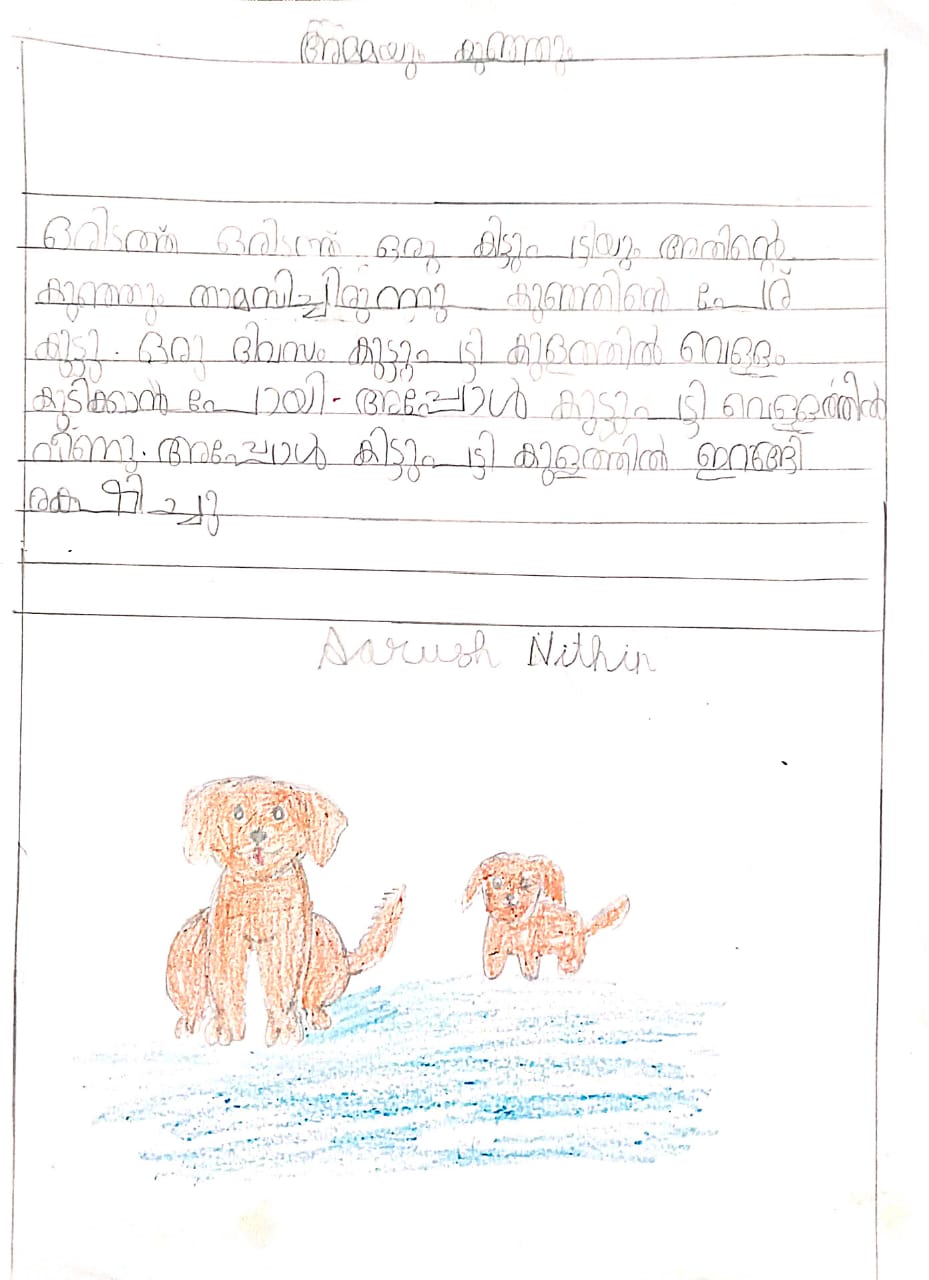 അമ്മയും കുഞ്ഞും
ഒരിടത്ത് ഒരിടത്ത് ഒരു കിട്ടും പട്ടിയും അതിന്റെ
കുഞ്ഞും താമസിച്ചിരുന്നു കുഞ്ഞിന്റെ പേര്
കുട്ടു. ഒരു ദിവസം കുട്ടും പട്ടി കുളത്തിൽ വെള്ളം
കുടിക്കാൻ പോയി. അപ്പോൾ കുട്ടും പട്ടി വെള്ളത്തിൽ
വീണു. അപ്പോൾ കിട്ടും പട്ടി കുളത്തിൽ ഇറങ്ങി
രക്ഷിച്ചു
Aarush Nithin